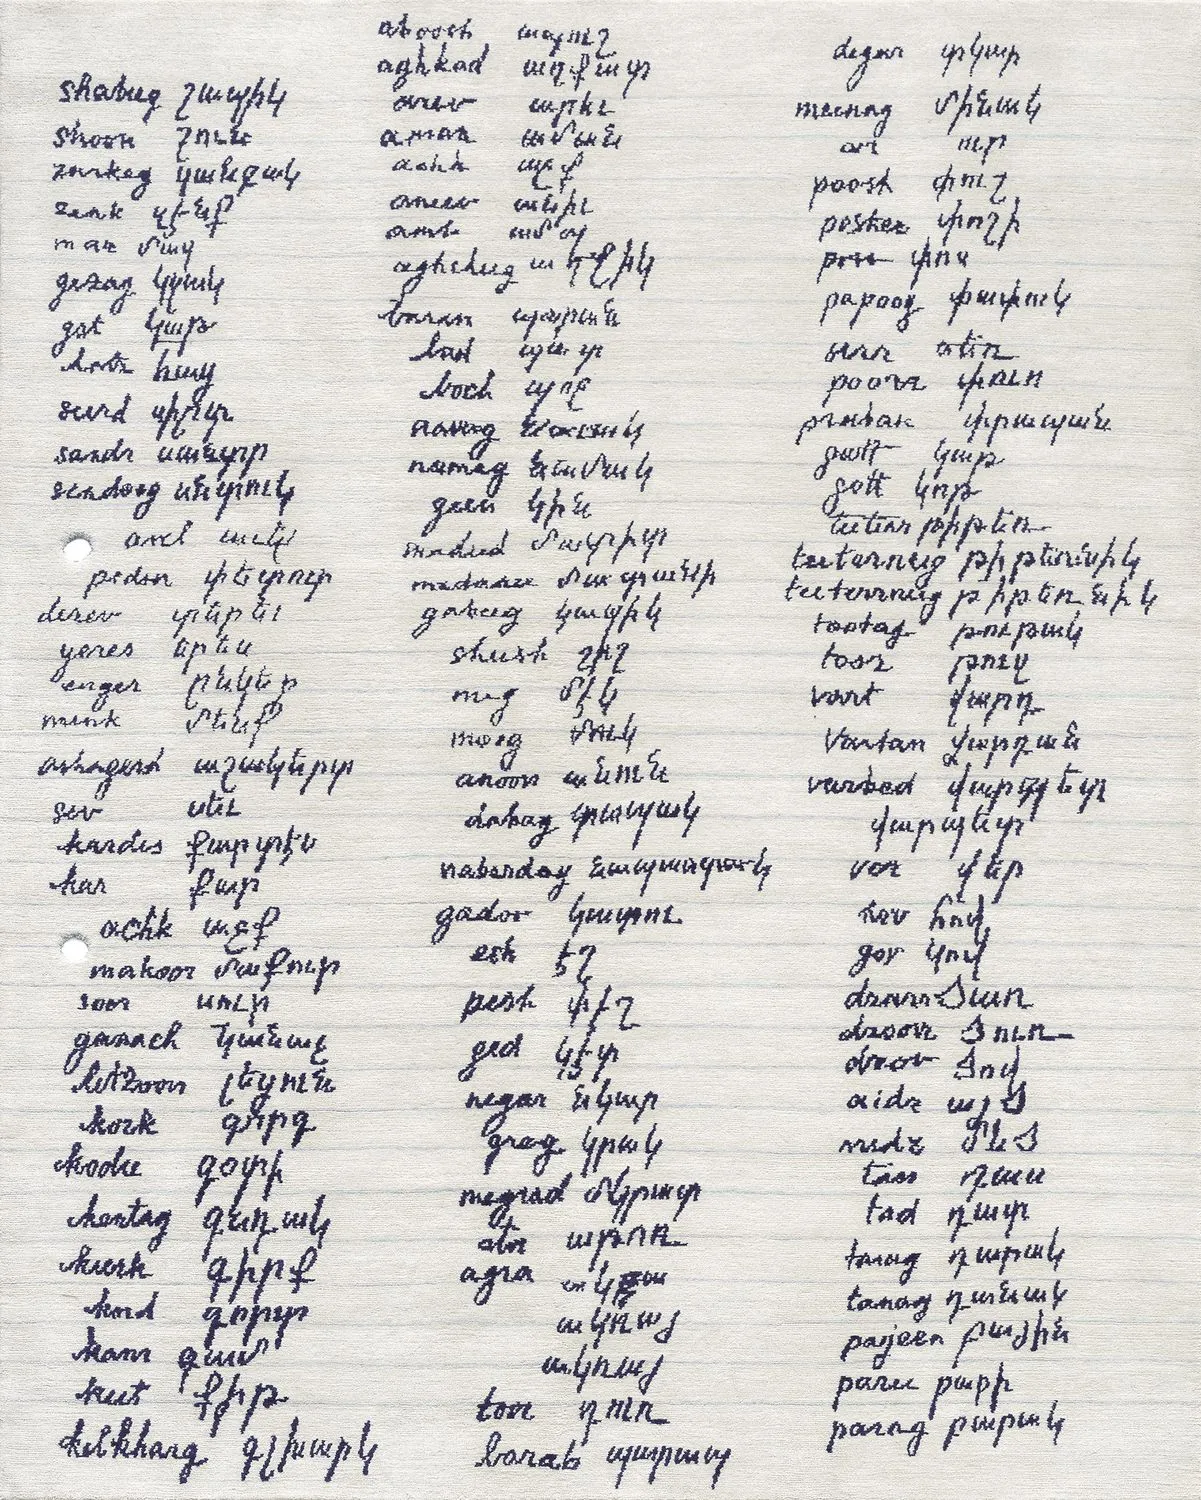 shabeeg շապիկ
shoon շուն
զանգակ
zenk զէնք
maz մազ
gezag կզակ
gat կաթ
hatz հաց
seerd սիրտ
sandr սանտր
sendoog սնտուկ
avel աւել
pedoor փետուր
derev տերեւ
yeres երես
enger ընկեր
menk մենք
ashagerd աշակերտ
sev սեւ
kardes քարտէս
kar քար
achk աչք
makoor մաքուր
soor սուր
ganach կանաչ
letzoon լեցուն
kork գորգ
kodee գօտի
kentag գնդակ
keerk գիրք
kord գորտ
kam գամ
keet քիթ
kelkharg գլխարկ
aboosh ապուշ
aghkad աղքատ
arev արեւ
aman աման
achk աչք
aneev անիւ
amb ամպ
aghcheeg աղջիկ
baran պարան
bad պատ
boch պոչ
navag նաւակ
namag նամակ
geen կին
madeed մատիտ
madanee մատանի
gabeeg կապիկ
sheesh շիշ
meg մէկ
moog մուկ
anoon անուն
dabag տապակ
nabasdag նապաստակ
gadoo կատու
esh էշ
pesh փէշ
ged կէտ
negar նկար
grag կրակ
megrad մկրատ
ator աթոռ
agra ակռա
ակռայ
ակռայ
toor դուռ
barab պարապ
degar տկար
meenag մինակ
ur ուր
poosh փուշ
poshee փոշի
pos փոս
papoog փափուկ
poorr փուռ
prnban
gatt կաթ
gott կոթ
teeterr թիթեռ
teeterneeg թիթեռնիկ
teeterrneeg թիթեռնիկ
tootag թութակ
tooz թուզ
vart վարդ
Vartan Վարդան
varbed վարպետ
վարպետ
ver վեր
hov հով
gov կով
dzarr Ծառ
dzoorr Ծուռ
dzov Ծով
aidz այծ
medz մեծ
tas դաս
tad դատ
tarag դարակ
tanag դանակ
pajeen բաժին
paree բարի
parag բարակ